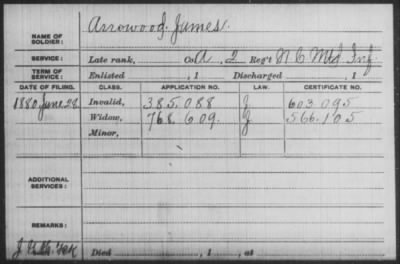 NAME OF SOLDIER: Arrowood, James.
SERVICE: Late rank, Co. A, 2 Reg't N C Mtd Inf.
TERM OF SERVICE: Enlisted , 1 Discharged , 1
DATE OF FILING. CLASS. APPLICATION NO. LAW. CERTIFICATE NO.
1880, June 28 Invalid, 385.088 J 603.095
Widow, 768.609. J. 566.105
Minor,
ADDITIONAL SERVICES:
REMARKS:
Died , 1 , at